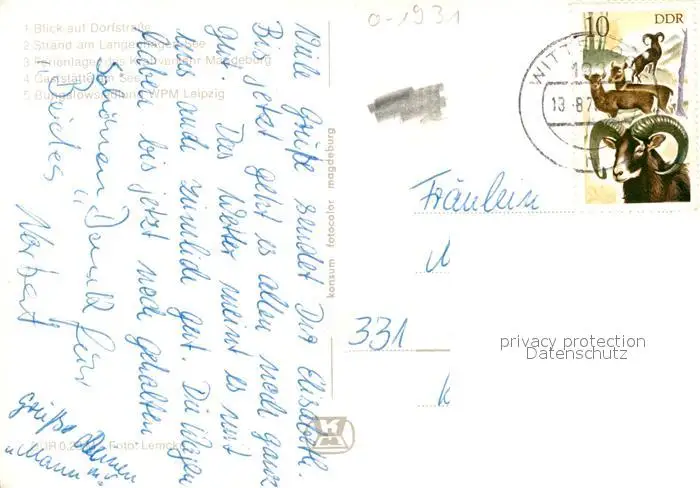 1 Blick auf Dorfstraße
2 Strand am Langen See
3 Ferienlager des Kraftverkehr Magdeburg
4 Gaststätte am See
5 Bungalowsiedlung WPM Leipzig
Viele Grüße sendet Dir Elisabeth.
Bis jetzt geht es allen noch ganz
gut. Das Wetter meint es mit
uns auch ziemlich gut. Die Wagen
haben bis jetzt noch gehalten
Schönen Dank für
"Beides"
Norbert
Grüße
"Mann"
konsum fotocolor magdeburg
Foto: Lemcke
0-1931
10 DDR
WITTST
13.-8.7
Fräulein
331
privacy protection
Datenschutz